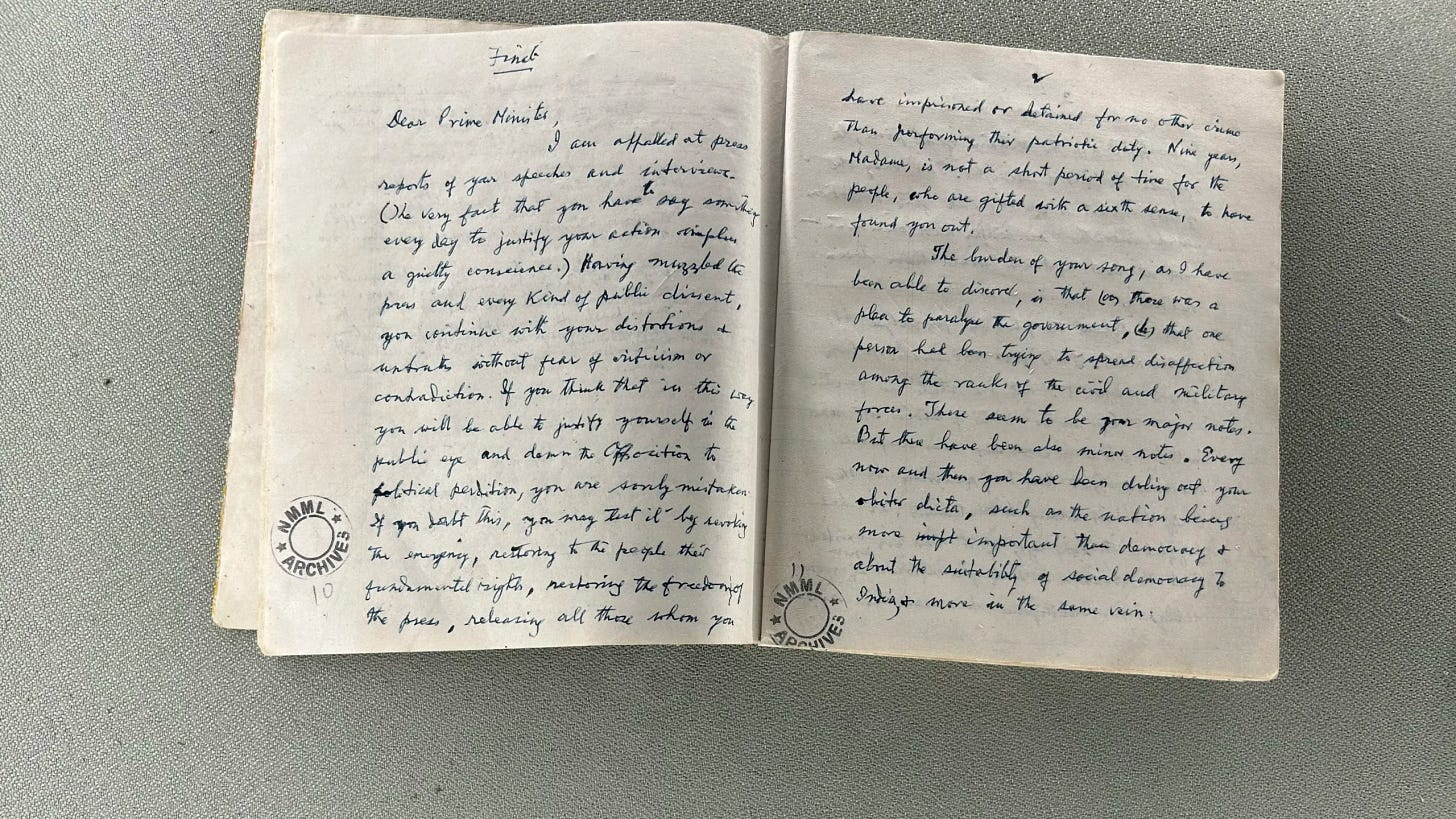 Final
Dear Prime Minister,
I am appalled at press
reports of your speeches and interviews.
(The very fact that you have to say something
every day to justify your action implies
a guilty conscience.) Having muzzled the
press and every kind of public dissent,
you continue with your distortions &
untruths without fear of criticism or
contradiction. If you think that in this way
you will be able to justify yourself in the
public eye and damn the Opposition to
political perdition, you are sorely mistaken.
If you doubt this, you may test it by revoking
the emergency, restoring to the people their
fundamental rights, restoring the freedom of
the press, releasing all those whom you
NMML ARCHIVES
10
have imprisoned or detained for no other crime
than performing their patriotic duty. Nine years,
Madame, is not a short period of time for the
people, who are gifted with a sixth sense, to have
found you out.
The burden of your song, as I have
been able to discover, is that (a) there was a
plan to paralyse the government, (b) that one
person had been trying to spread disaffection
among the ranks of the civil and military
forces. These seem to be your major notes.
But there have been also minor notes. Every
now and then you have been doling out your
obiter dicta, such as the nation being
more important than democracy &
about the suitability of social democracy to
India, & more in the same vein.
11
NMML ARCHIVES